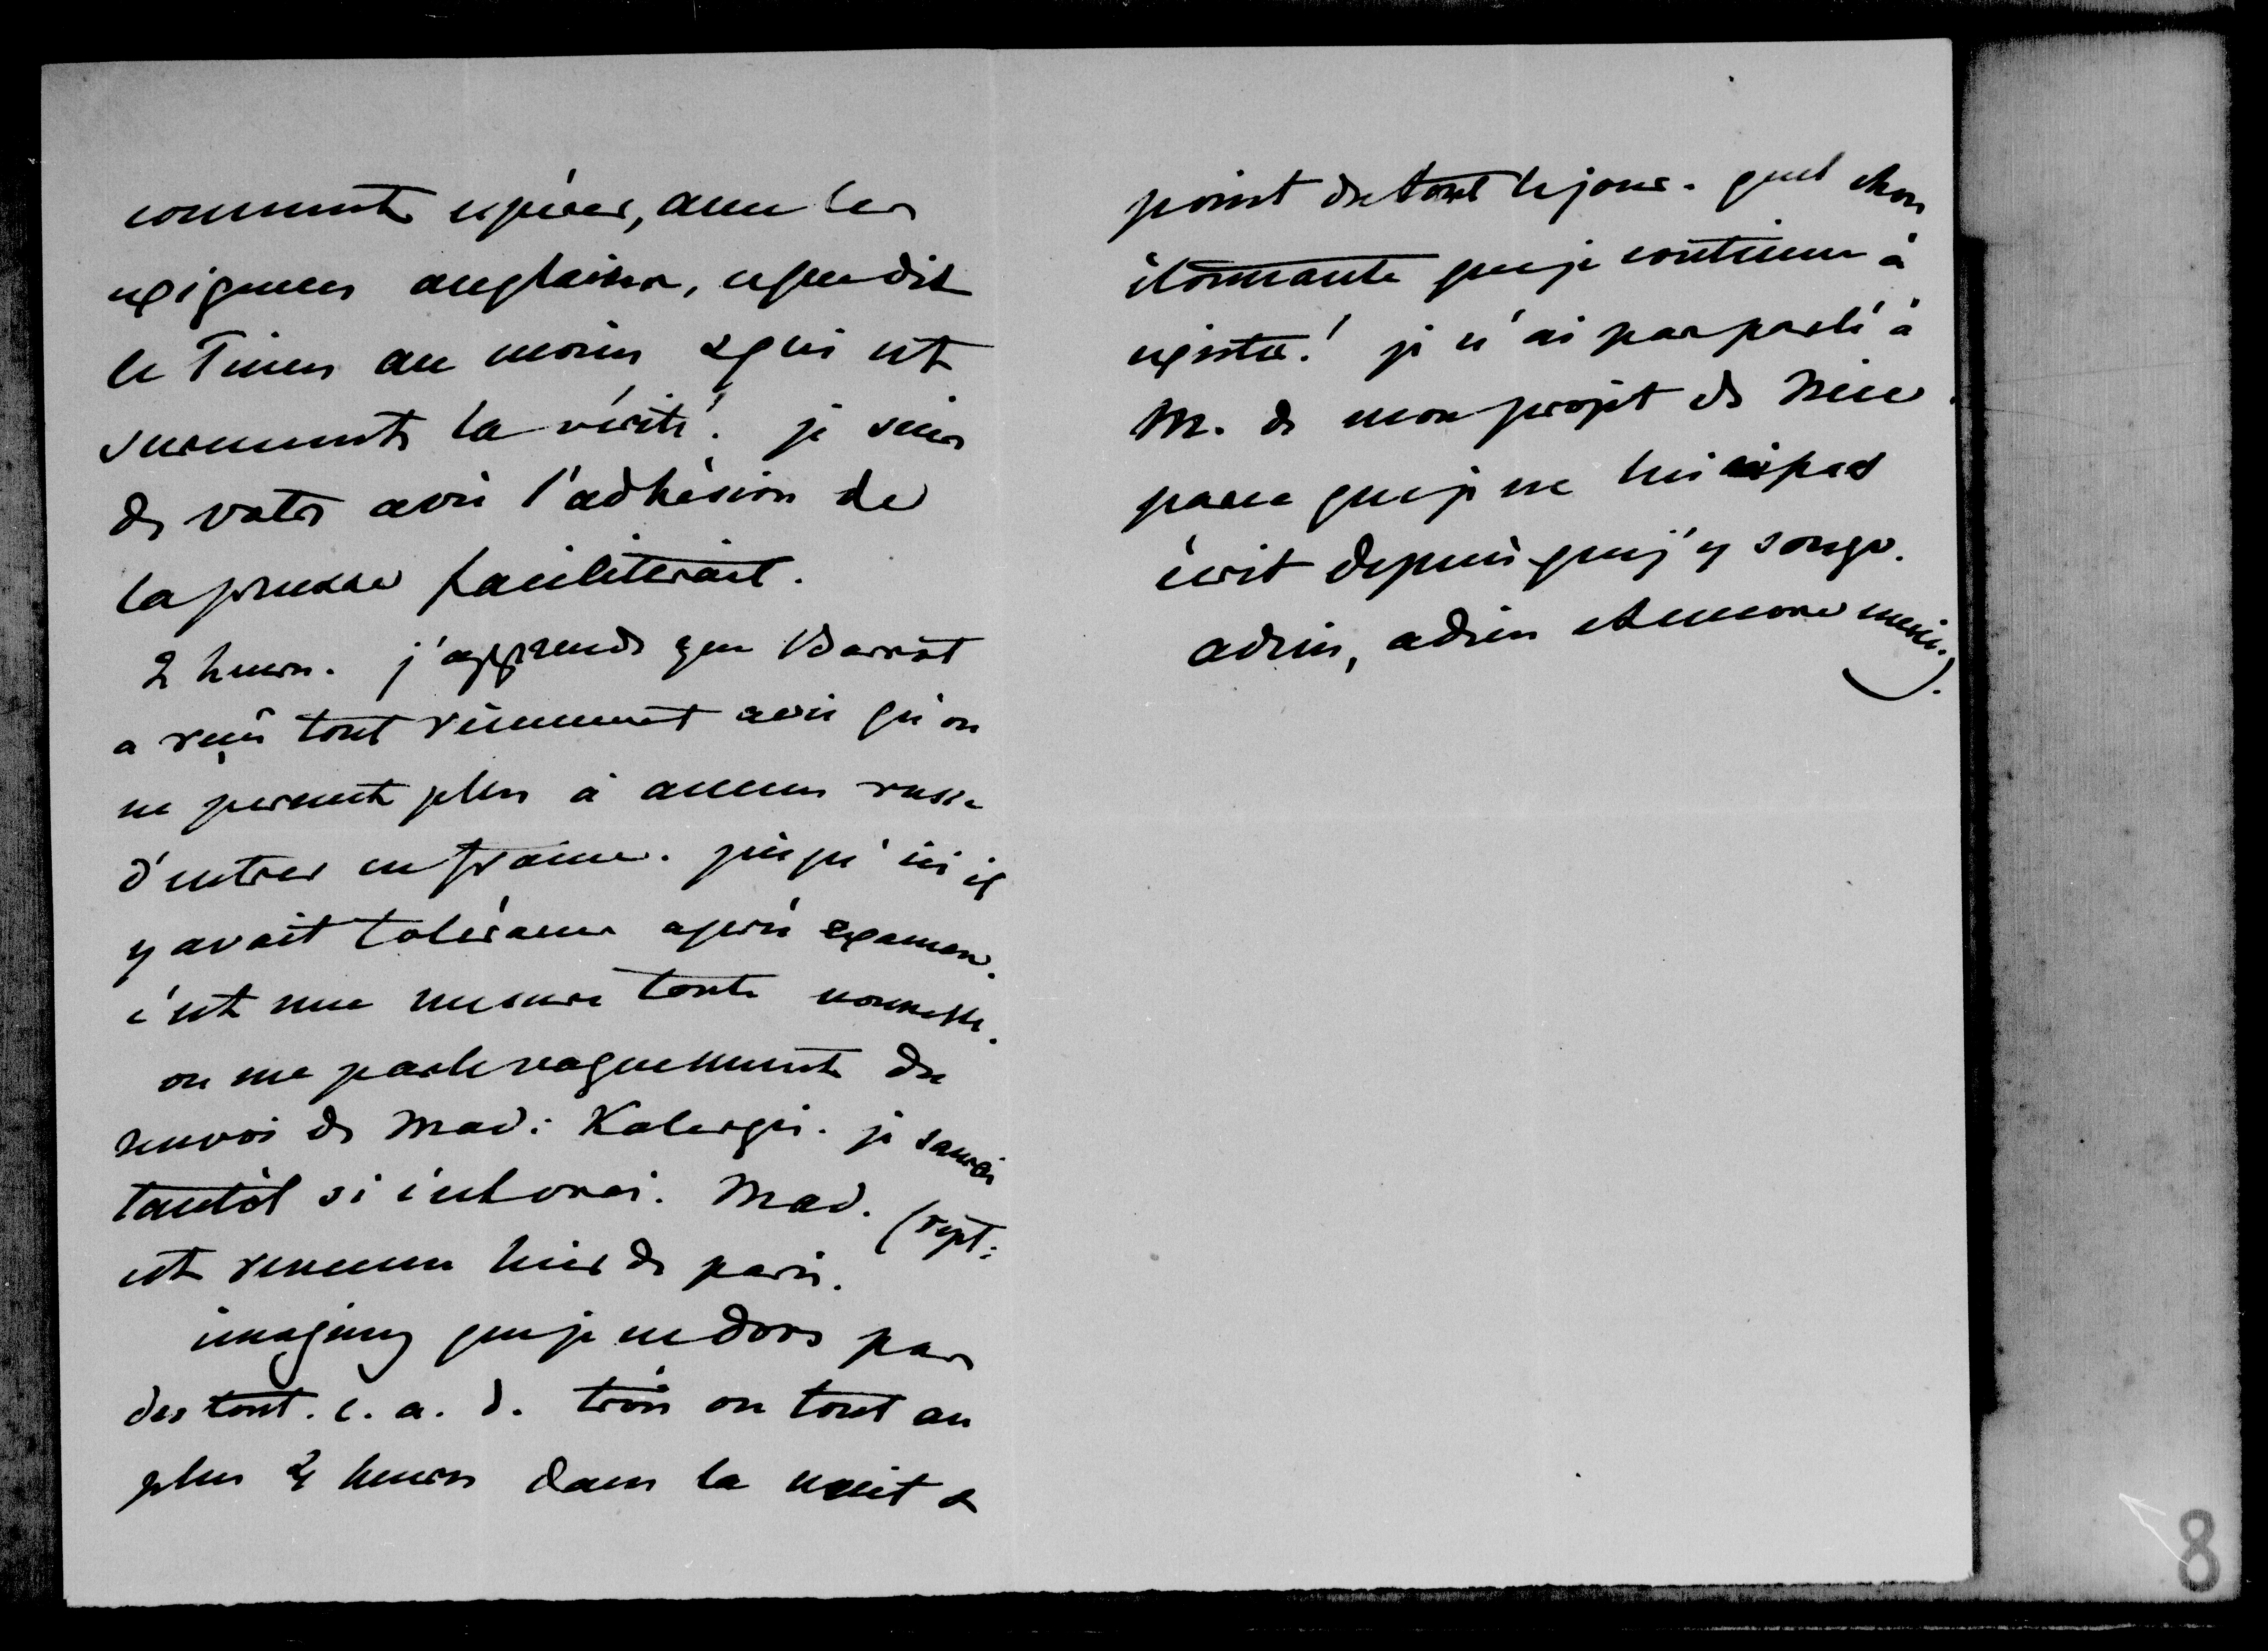 comment espérer, avec les
exigences anglaises, ce que dit
le Times au moins & qui est
surement la vérité! je suis
de votre avis l'adhésion de
la prusse faciliterait.
2 heures. j'apprends que Barrot
a reçu tout récemment avis qu'on
ne permet plus à aucun russe
d'entrer en france. jusqu'ici il
y avait tolérance après examen.
c'est une mesure toute nouvelle.
on me parle vaguement du
renvoi de Mad: Kalergis. je saurai
tantôt si c'est vrai. Mad.
est revenue hier de paris.
imaginez que je ne dors pas
du tout. c. a. d. trois ou tout au
plus 4 heures dans la nuit &
point du tout le jour. quel chose
étonnante que je continue à
exister! je n'ai pas parlé à
M. de mon projet de Nice
parce que je ne lui ai pas
écrit depuis que j'y songe.
adieu, adieu et encore merci.
8